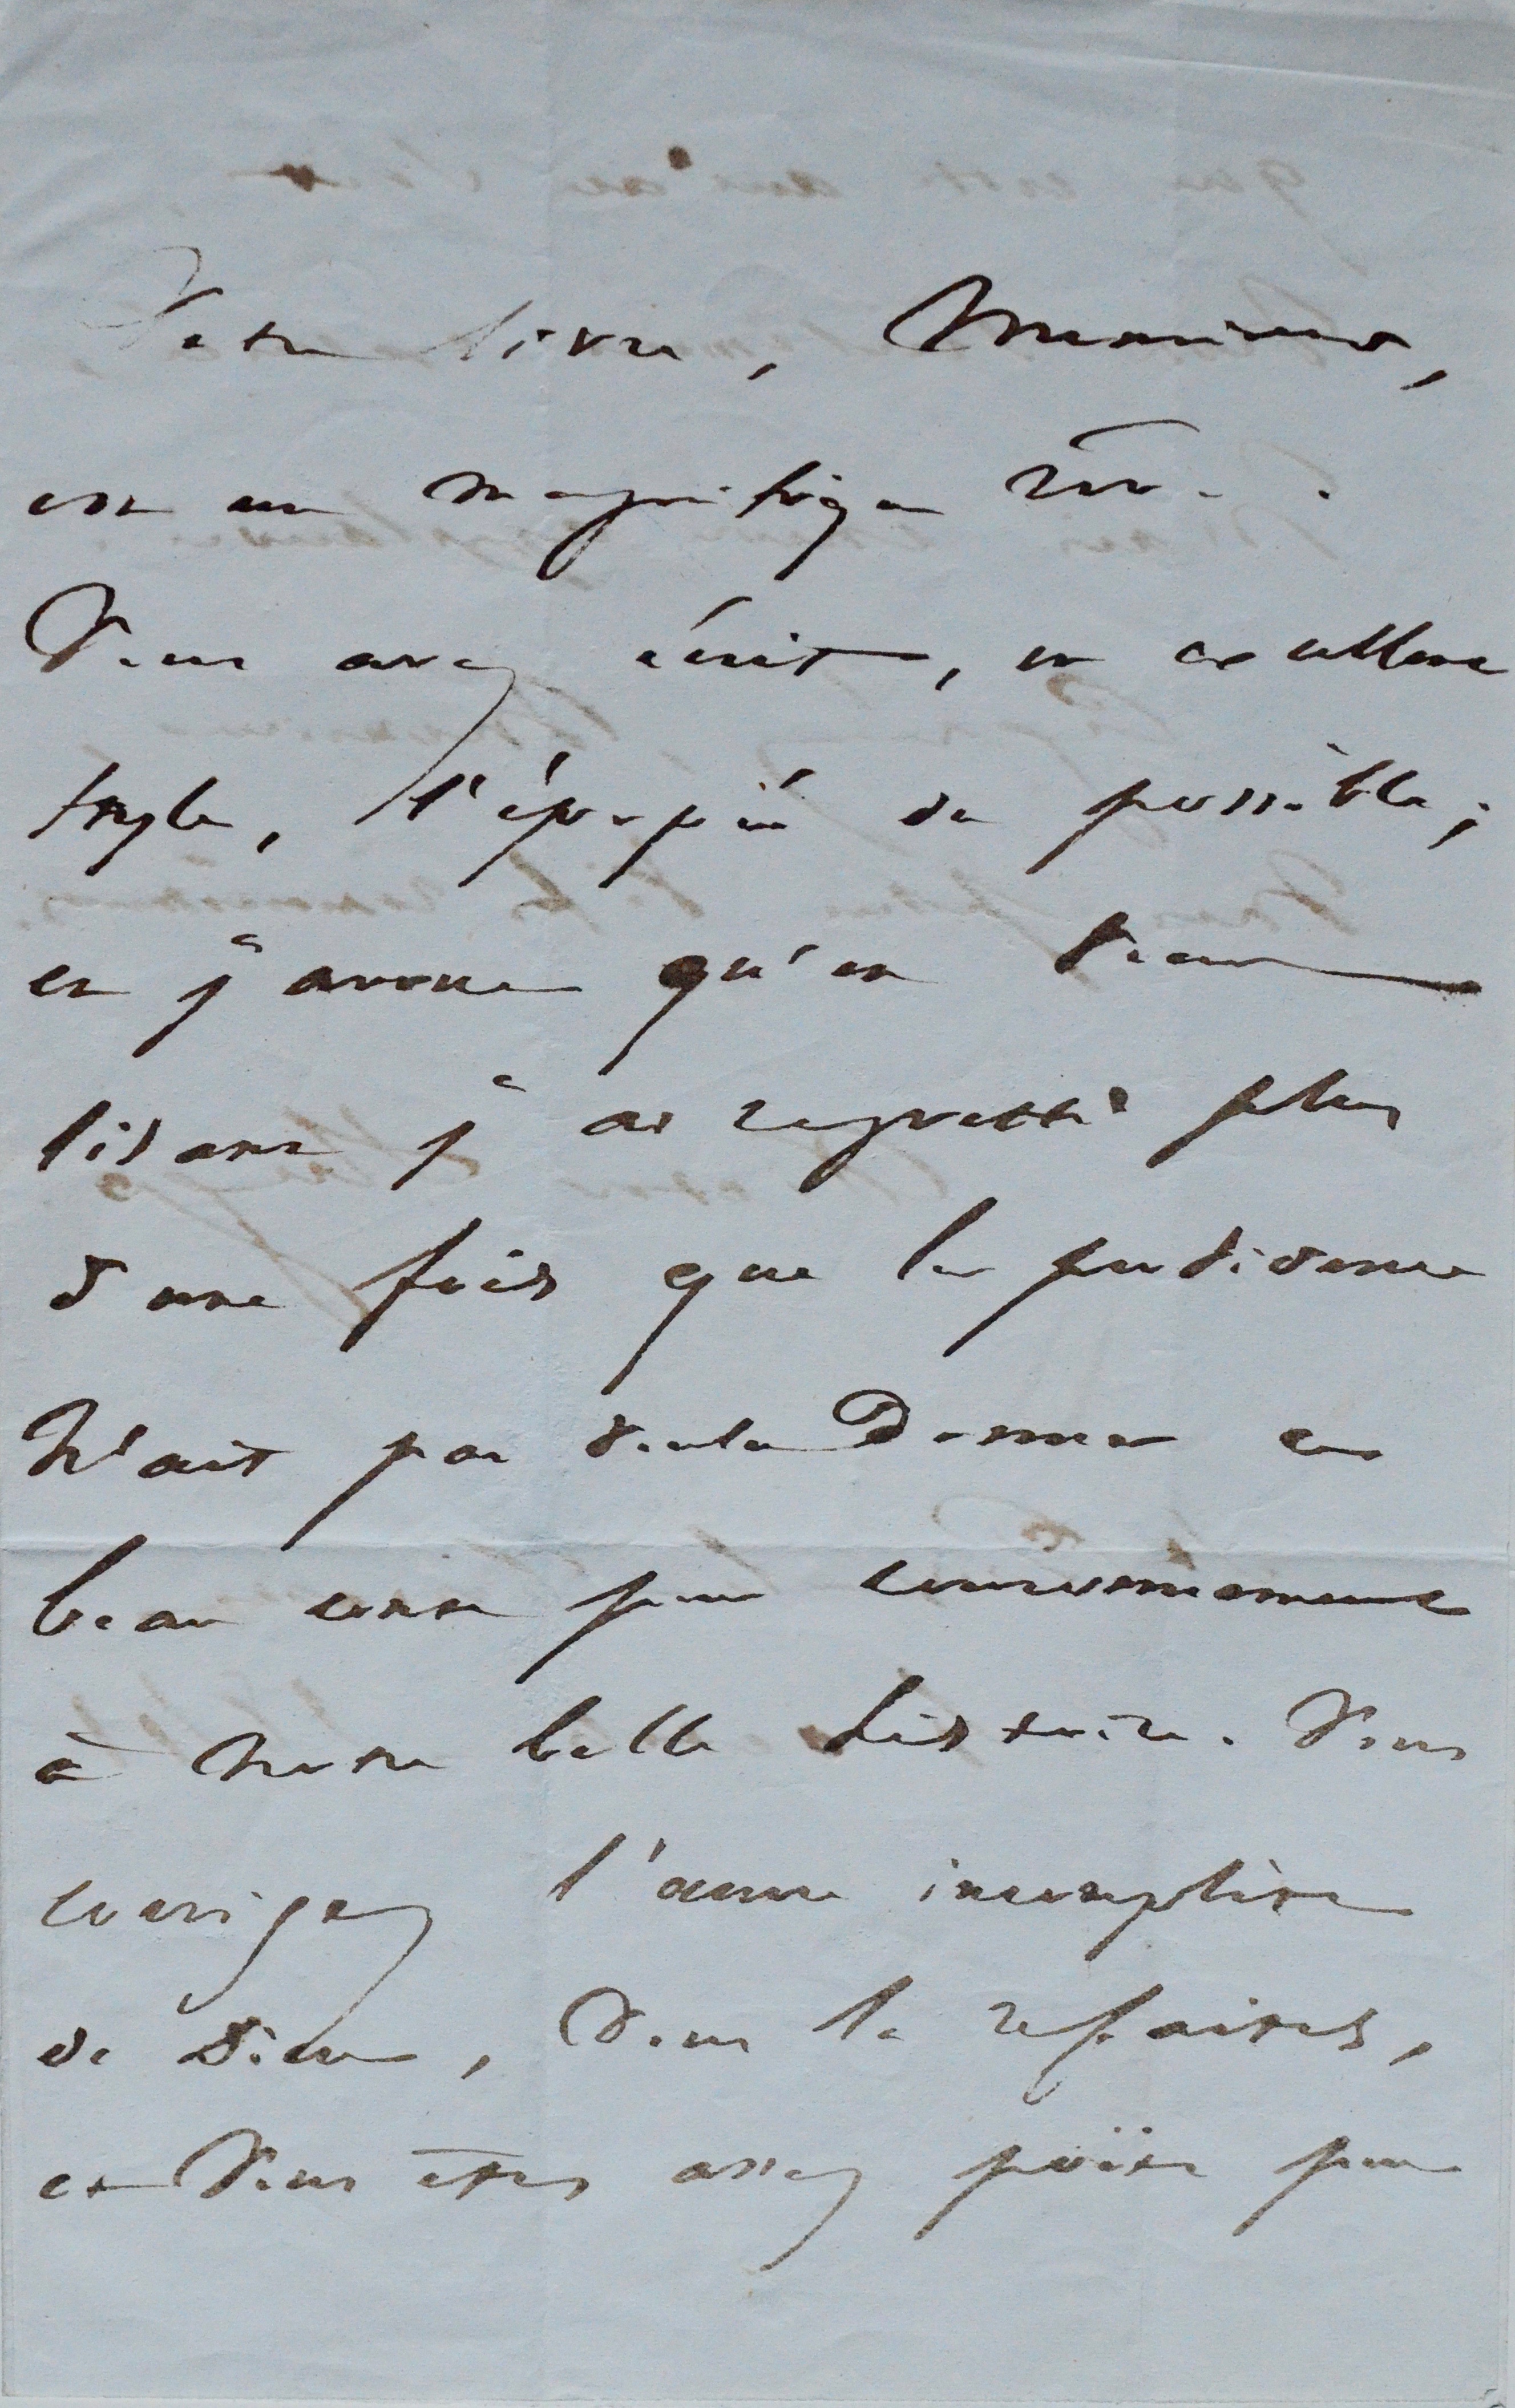 Votre livre, Monsieur,
est un magnifique rêve.
Vous avez écrit, en excellent
style, l'épopée du possible ;
et j'avoue qu'en vous
lisant j'ai regretté plus
d'une fois que la providence
n'ait pas voulu donner ce
beau conte pour couronnement
à notre belle histoire. Vous
corrigez l'œuvre incomplète
de Dieu, vous la refaites,
et vous êtes assez poëte pour